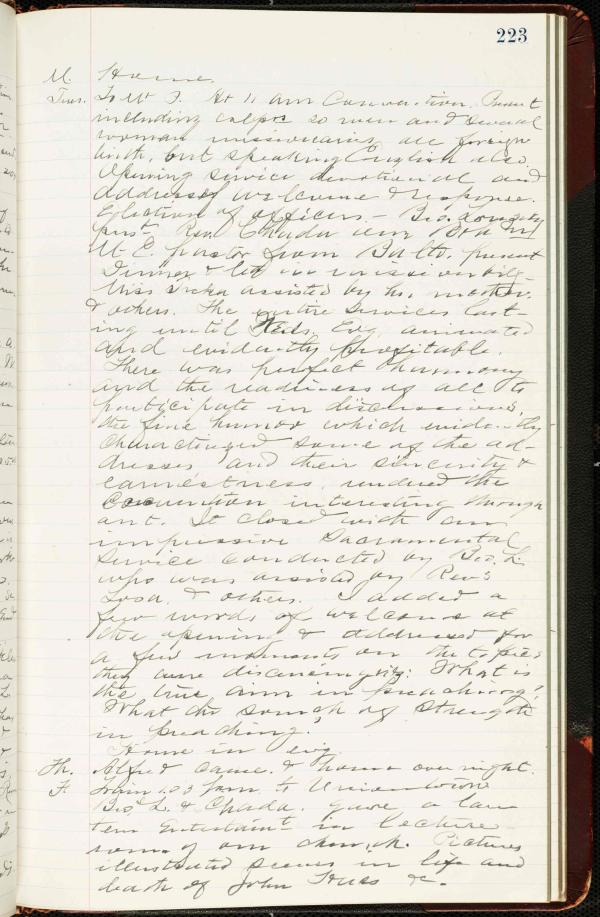 223
M. Home.
Tues. To W. P. At 11 am Convention. Present
including 20 men and several
woman missionaries all foreign
birth, but speaking English also.
Opening service devotional and
address of welcome & response.
Election of officers - Bro.
Rev. Chada
M. E. pastor from Balto. present
Dinner &
Miss assisted by his mother
& others. The entire services last-
ing until Eve. animated
and evidently profitable.
There was perfect harmony
and the readiness of all to
participate in discussions,
the fine humor which evidently
characterized some of the ad-
dresses and their sincerity &
earnestness rendered the
Convention interesting through
out. It closed with an
impressive Sacramental
Service conducted by Bro. L.
who was assisted by Rev's
& others. I added a
few words of welcome at
the opening & addressed for
a few moments on the topics
they were discussing: What is
the true aim in preaching?
What the source of Strength
in preaching.
Home in eve.
Th. Alfred came & home over night.
F. Train 1.03 pm. to Uniontown
Bro's L. & Chada. gave a lan
tern Entertain't in lecture
room of our church. Pictures
illustrated scenes in life and
death of John Huss &c.